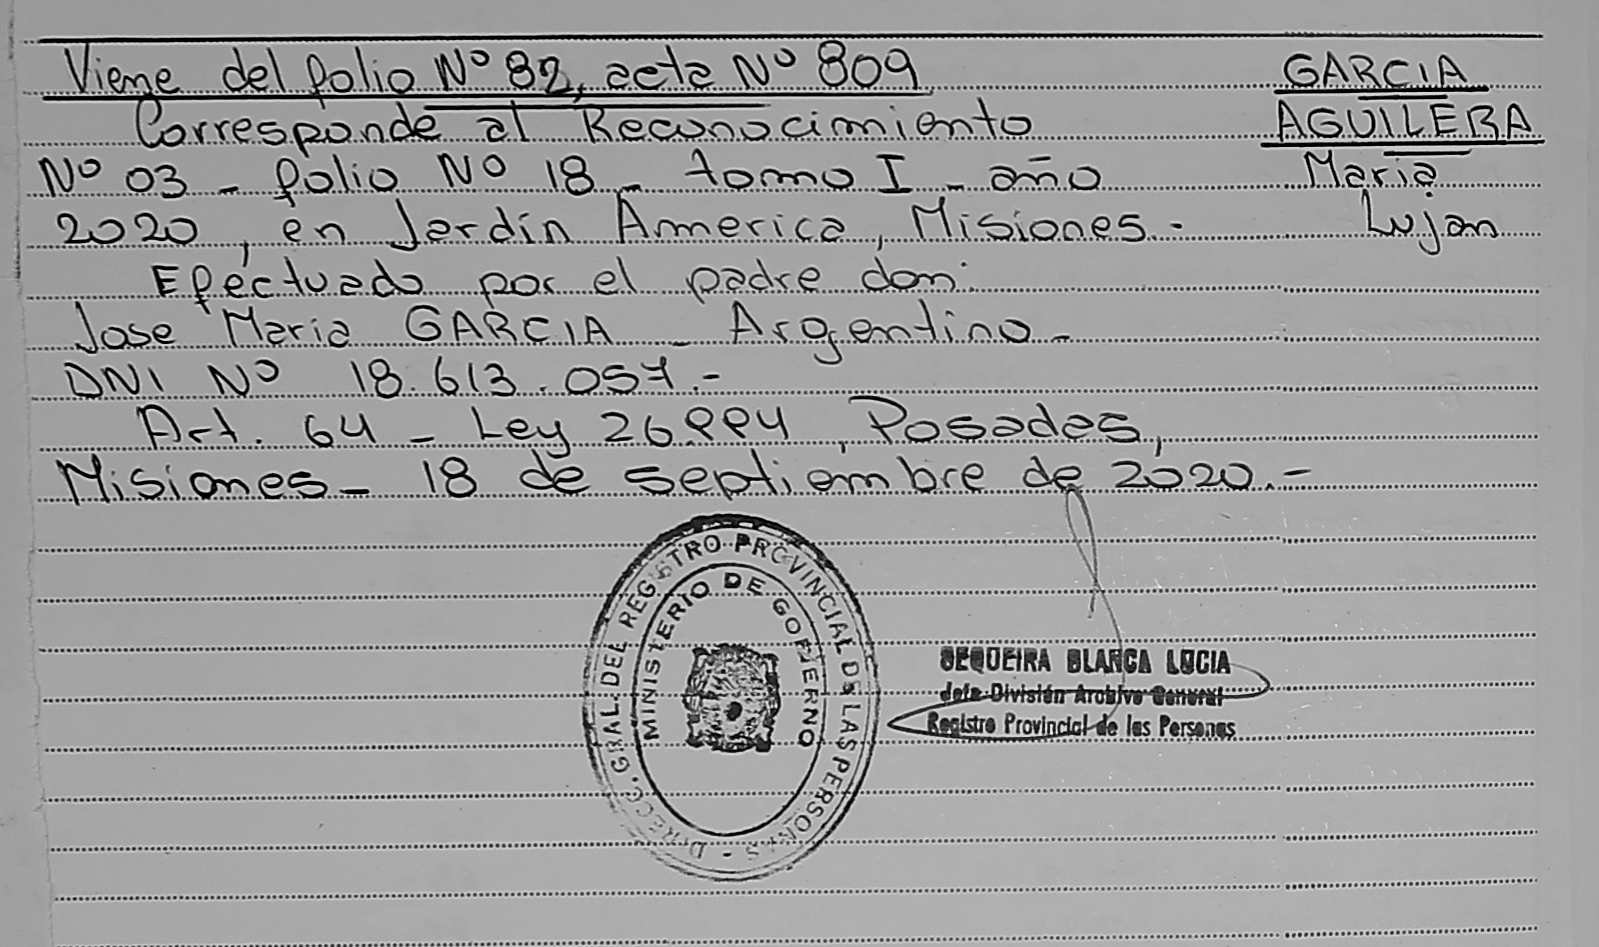 Viene del folio Nº 82, acta Nº 809
GARCIA
AGUILERA
Maria
Lujan
Corresponde al Reconocimiento
Nº 03 - folio Nº 18 - tomo I - año
2020, en Jardín America, Misiones.-
Efectuado por el padre don:
Jose Maria GARCIA - Argentino -
DNI Nº 18.613.057.-
Art. 64 - Ley 26.994, Posadas,
Misiones - 18 de septiembre de 2020.-
DIRECC. GRAL. DEL REGISTRO PROVINCIAL DE LAS PERSONAS
MINISTERIO DE GOBIERNO
SEQUEIRA BLANCA LUCIA
Jefa División Archivo General
Registro Provincial de las Personas